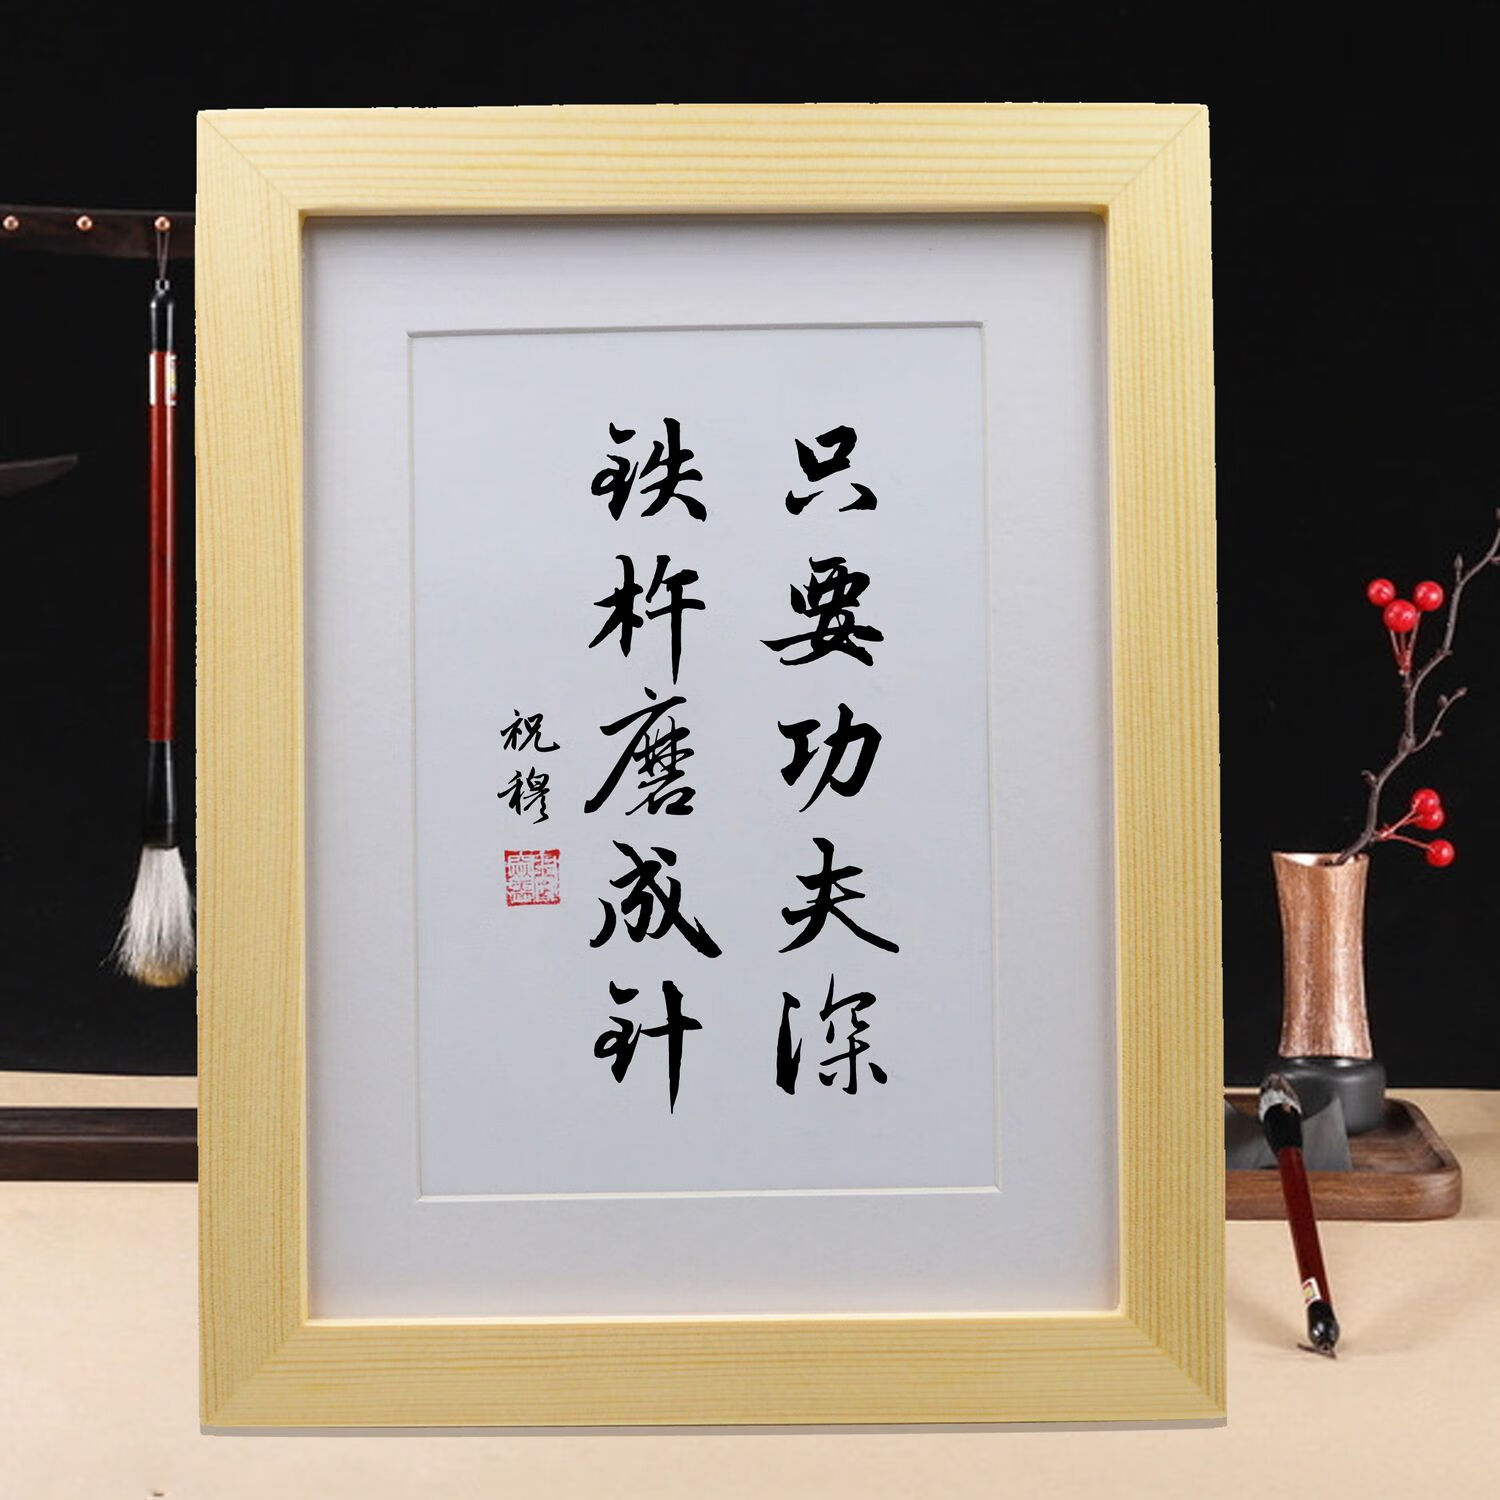 只要功夫深
铁杵磨成针
祝穆